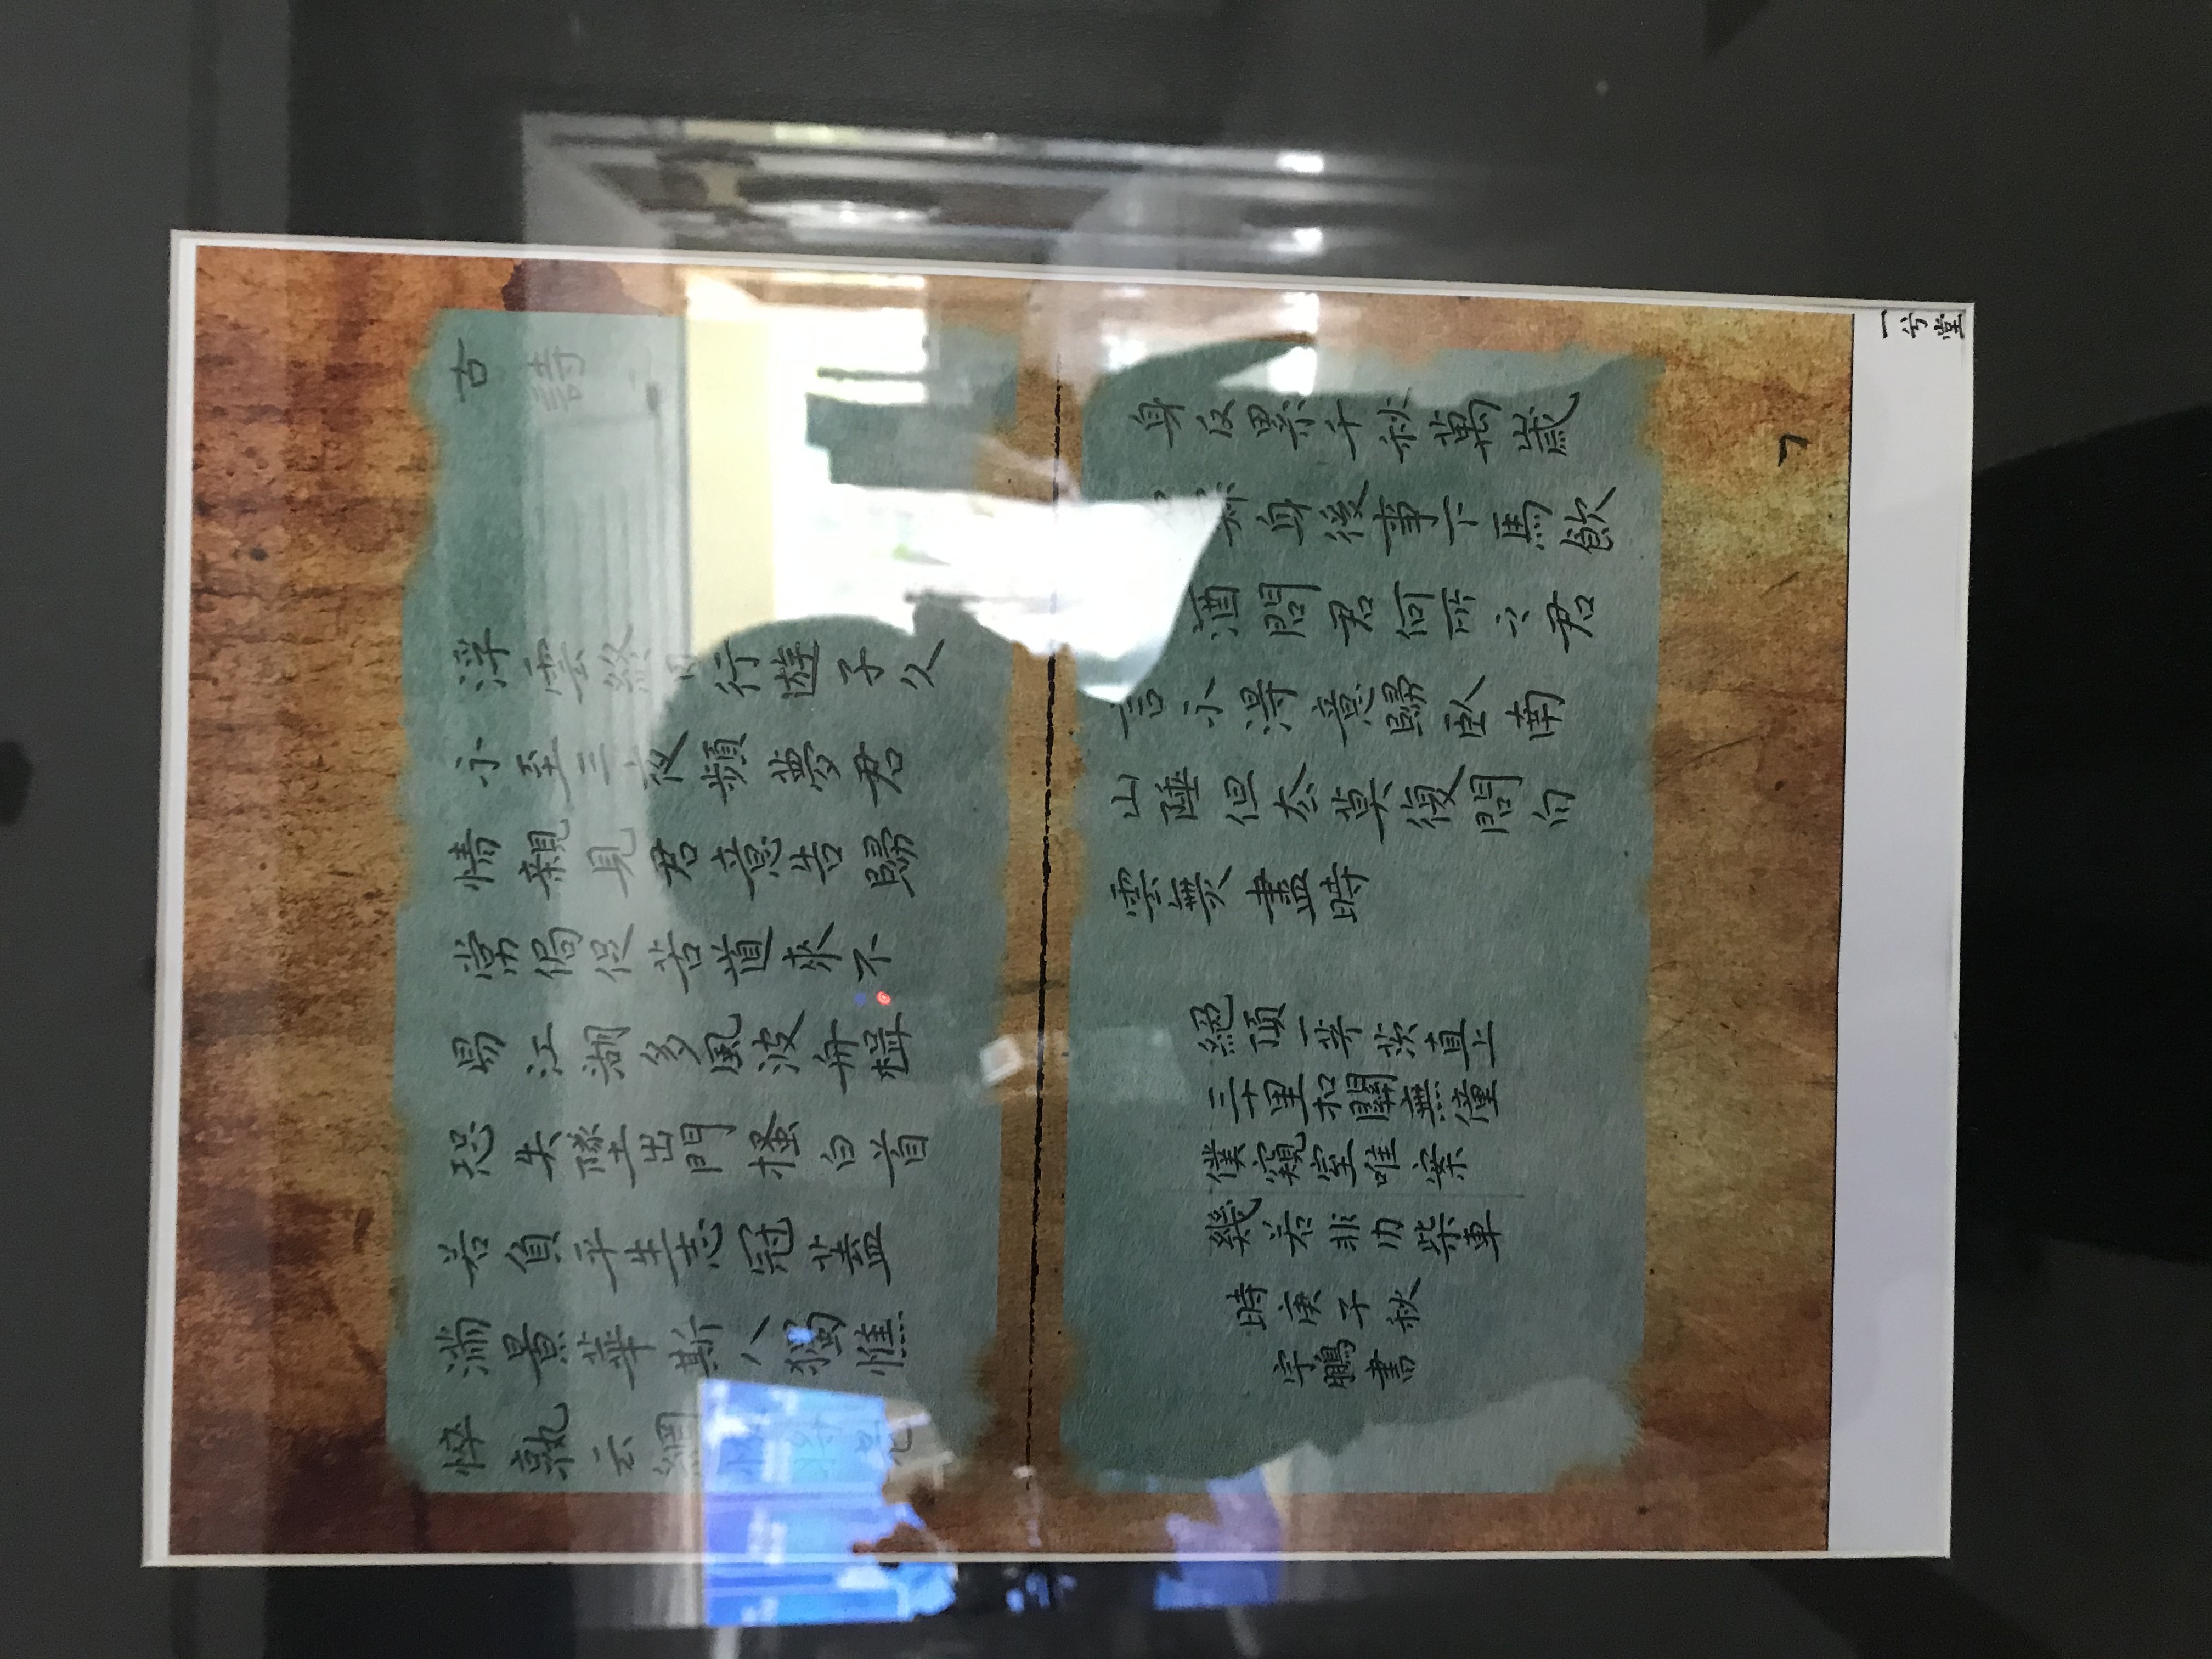 古詩
浮雲終日行遊子久
不至三夜頻夢君
情親見君意告歸
常侷促苦道來不
易江湖多風波舟楫
恐失墜出門搔白首
若負平生志冠蓋
滿景華斯人獨憔
悴孰云網
身反累千秋萬歲
身後事下馬飲
酒問君何所之君
言不得意歸臥南
山陲但去莫復問白
雲無盡時
絕頂一茅茨直上
三十里扣關無僮
僕窺室唯案
幾若非巾柴車
時庚子秋
宇鵬書
一兮堂